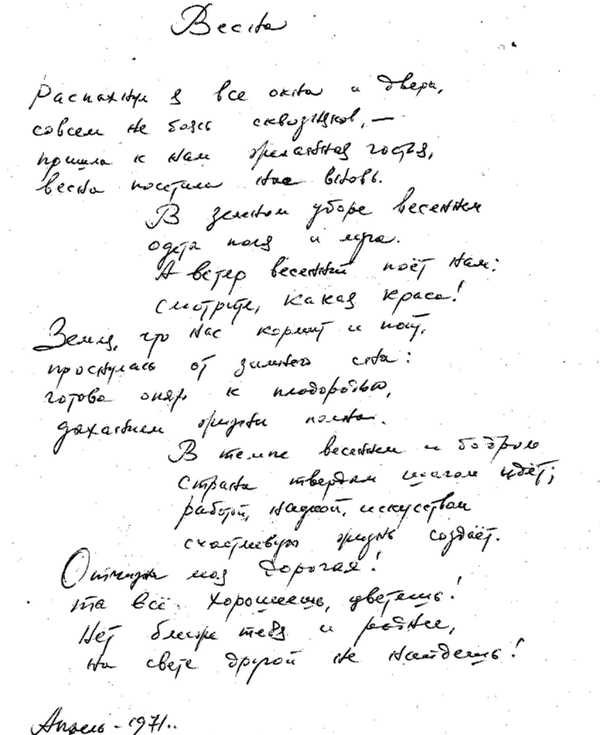 Весна
Распахнул я все окна и двери,
совсем не боясь сквозняков, —
пришла к нам желанная гостья,
весна посетила нас вновь.
В зелёном уборе весеннем
одеты поля и леса.
А ветер весенний поёт нам:
смотрите, какая краса!
Земля, что нас кормит и поит,
проснулась от зимнего сна:
готова опять к плодородью,
дыханием жизни полна.
В темпе весеннем и бодром
страна твердым шагом идёт;
работой, наукой, искусством
счастливую жизнь создаёт.
Отчизна моя дорогая!
ты всё хорошеешь, цветешь!
Нет ближе тебя и роднее,
на свете другой не найдешь!
Апрель - 1971..